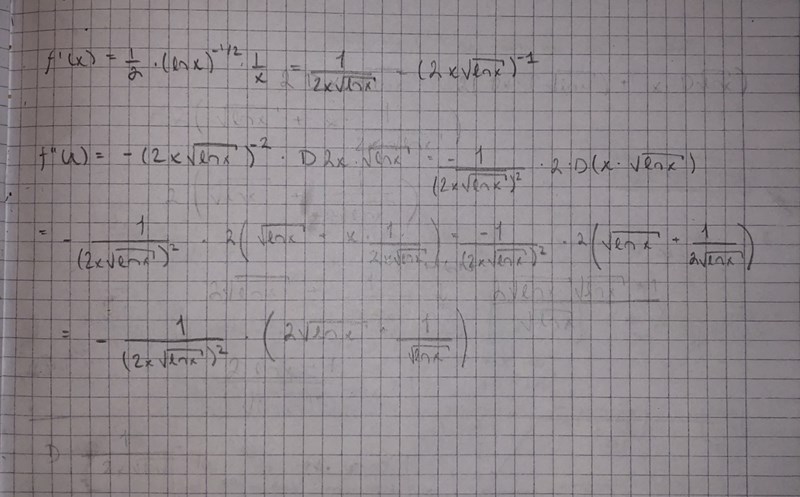 f'(x) = 1/2 · (ln x)^-1/2 · 1/x = 1/(2x√ln x) = (2x√ln x)^-1
f''(x) = -(2x√ln x)^-2 · D 2x·√ln x = -1/(2x√ln x)^2 · 2·D(x·√ln x)
= -1/(2x√ln x)^2 · 2(√ln x + x·1/(2x√ln x)) = -1/(2x√ln x)^2 · 2(√ln x + 1/(2√ln x))
= -1/(2x√ln x)^2 · (2√ln x + 1/√ln x)
D